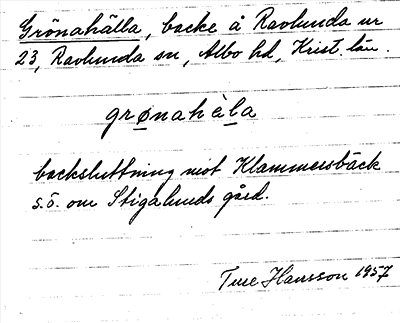 Grönahälla, backe å Ravlunda nr
23, Ravlunda sn, Albo hd, Krist. län.
grønahèla
backsluttning mot Klammersbäck
s.ö. om Stigalunds gård.
Ture Hansson 1957